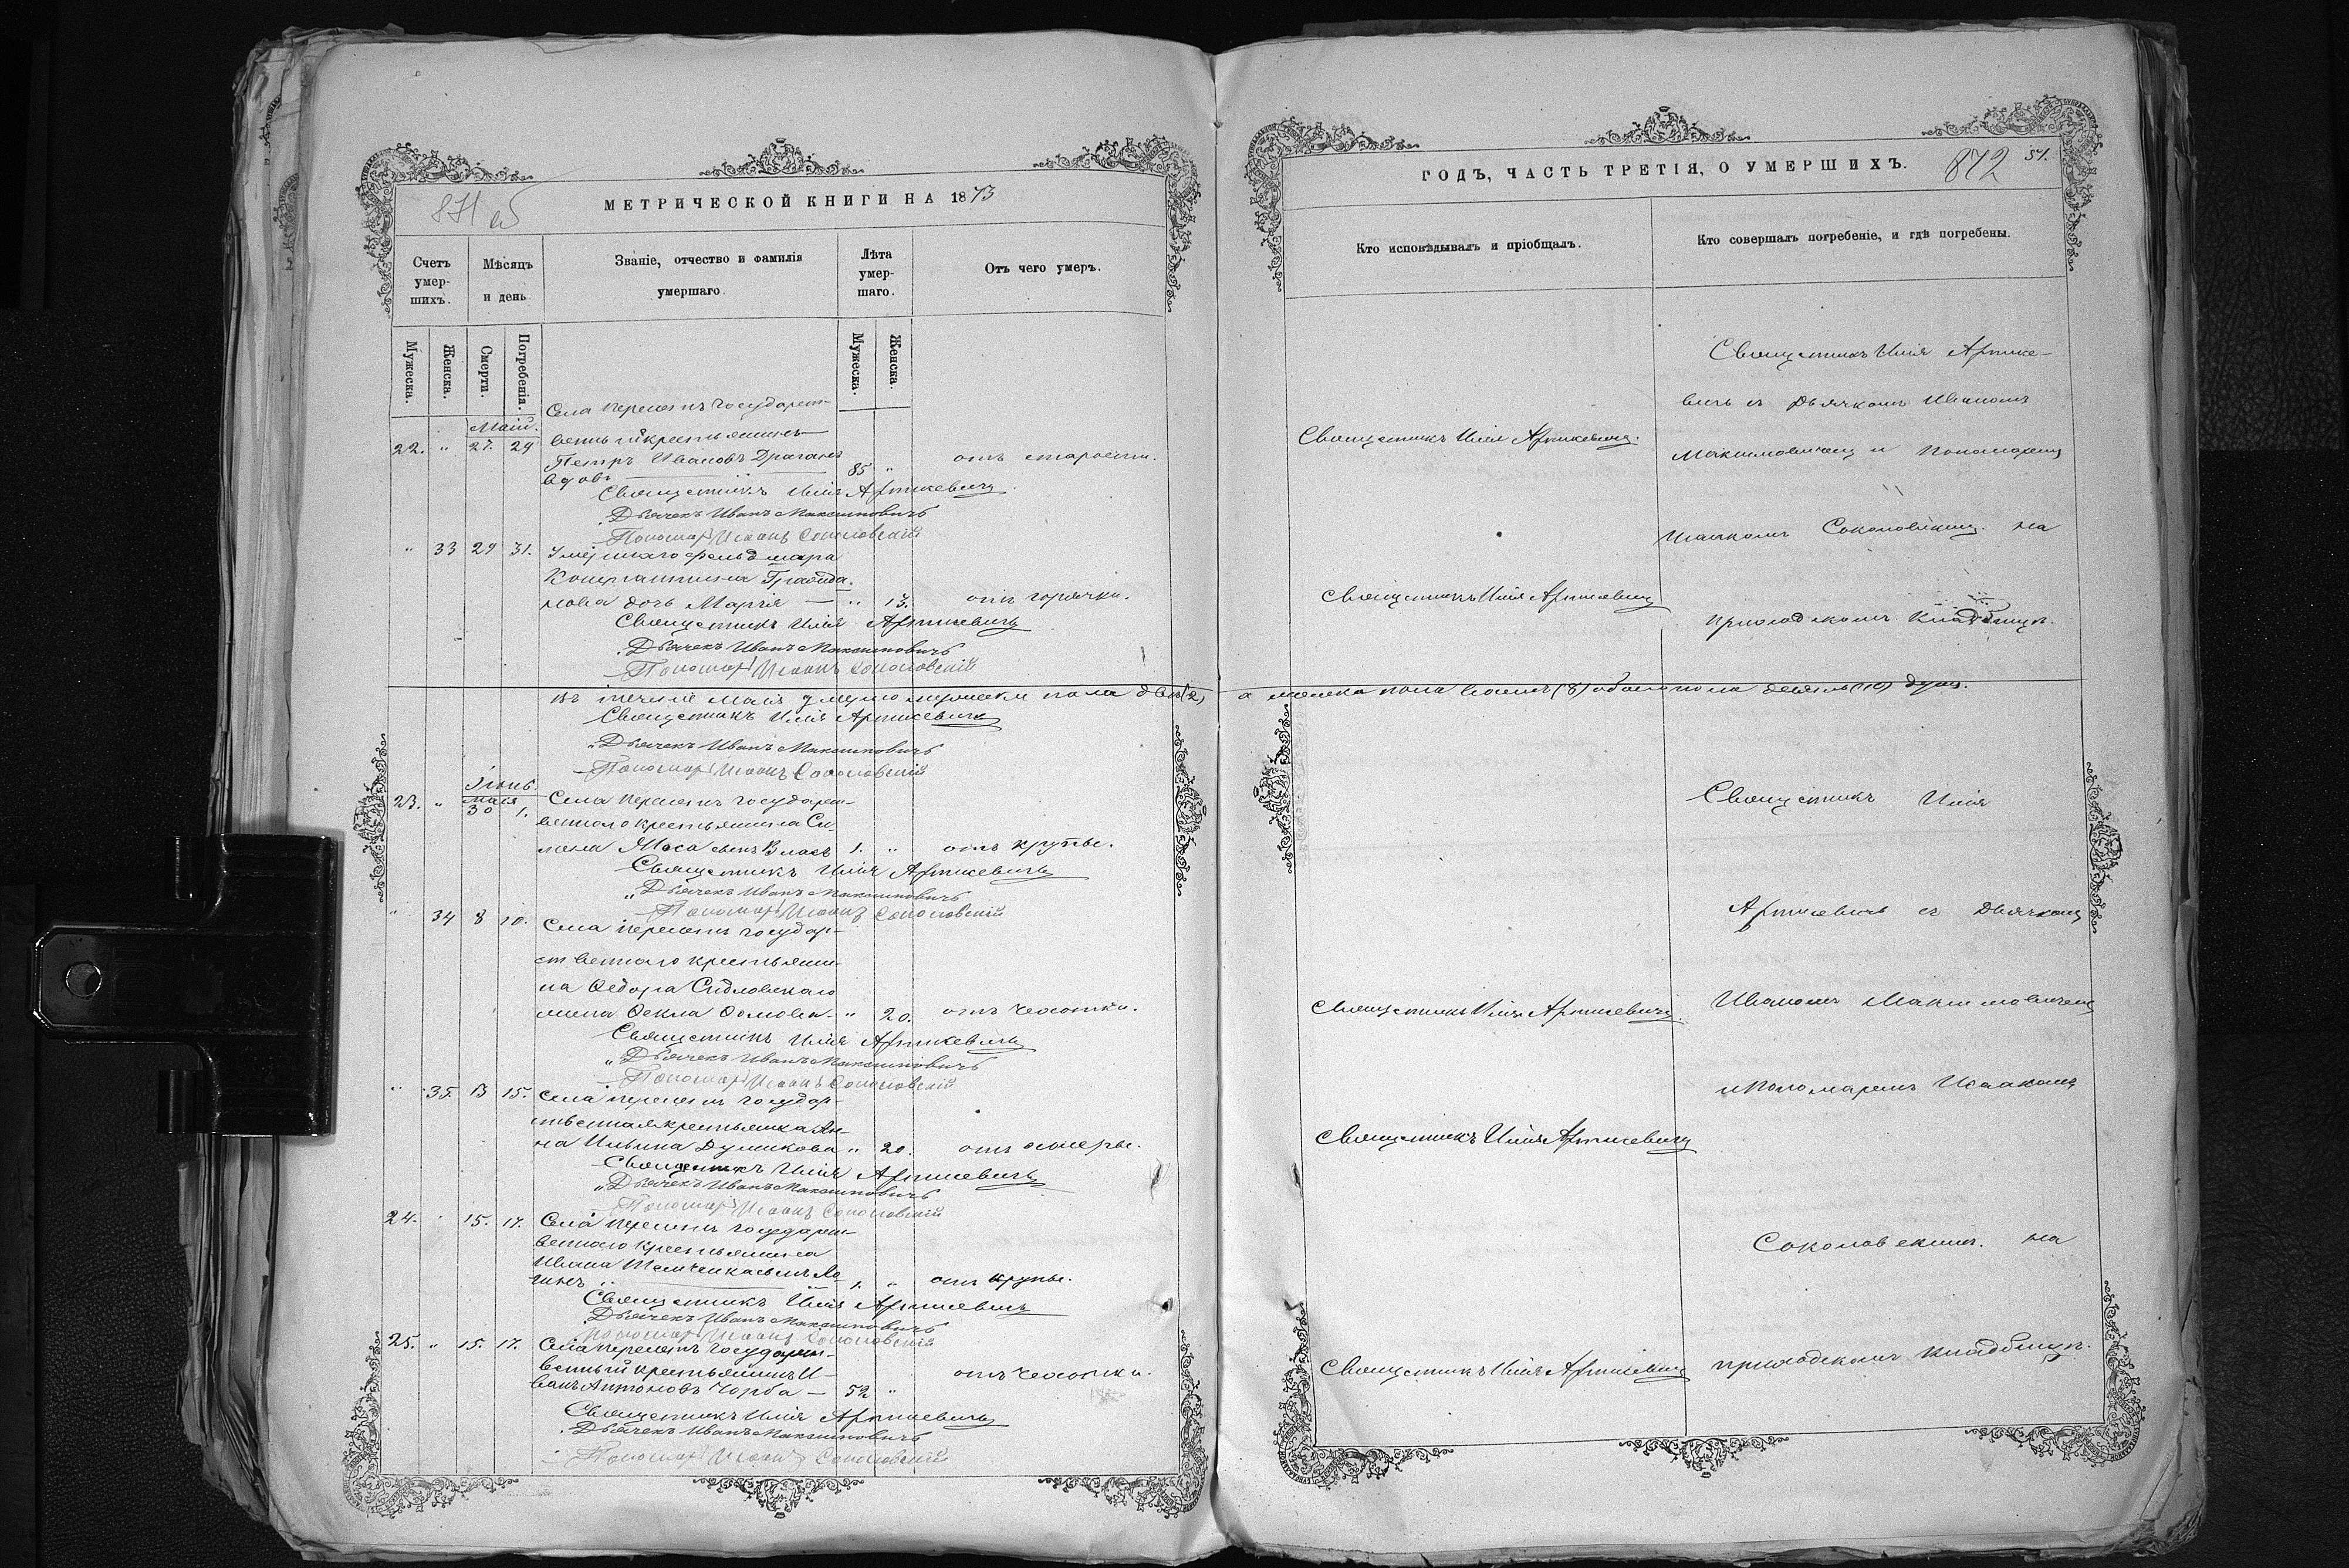 871 об
МЕТРИЧЕСКОЙ КНИГИ НА 1873
Счетъ умер-шихъ.
Мѣсяцъ и день
Званіе, отчество и фамилія умершаго
Лѣта умер-шаго.
Отъ чего умеръ.
Мужеска.
Женска.
Смерти.
Погребенія.
Мужеска.
Женска.
Села государст-
Маій.
22. " 27. 29 венный крестьянинъ
Петръ Ивановъ
вдовъ 85 " отъ старости.
Священникъ Илія Артикевичъ
Дьячекъ Иванъ Максимовичъ
Пономарь Исаакъ Соколовскій
" 33 29 31. Умершаго фельдшара
Константина
нова дочь Марія — " 13. отъ горячки.
Священникъ Илія Артикевичъ
Дьячекъ Иванъ Максимовичъ
Пономарь Исаакъ Соколовскій
Въ теченіе Маія умерло мужеска пола два (2)
Священникъ Илія Артикевичъ
Дьячекъ Иванъ Максимовичъ
Пономарь Исаакъ Соколовскій
Іюнь.
23. " Маія 30 1. Села государст-
веннаго крестьянина
сынъ Власъ 1. " отъ крупы.
Священникъ Илія Артикевичъ
Дьячекъ Иванъ Максимовичъ
Пономарь Исаакъ Соколовскій
" 34 8 10. Села государ-
ственнаго крестьяни-
на Ѳедора
Ѳекла " 20. отъ чахотки.
Священникъ Илія Артикевичъ
Дьячекъ Иванъ Максимовичъ
Пономарь Исаакъ Соколовскій
" 35. 13 15. Села государ-
ственная крестьянка Ан-
на Ильина " 20. отъ
Священникъ Илія Артикевичъ
Дьячекъ Иванъ Максимовичъ
Пономарь Исаакъ Соколовскій
24. " 15. 17. Села государст-
веннаго крестьянина
Ивана сынъ Ло-
гинъ 1. " отъ крупы.
Священникъ Илія Артикевичъ
Дьячекъ Иванъ Максимовичъ
Пономарь Исаакъ Соколовскій
25. " 15. 17. Села государст-
венный крестьянинъ И-
ванъ Антоновъ Чорба — 52 " отъ чахотки.
Священникъ Илія Артикевичъ
Дьячекъ Иванъ Максимовичъ
Пономарь Исаакъ Соколовскій
ГОДЪ, ЧАСТЬ ТРЕТІЯ, О УМЕРШИХЪ.
872 51.
Кто исповѣдывалъ и пріобщалъ.
Кто совершалъ погребеніе, и гдѣ погребены.
Священникъ Илія Артике-
вичъ съ Дьячкомъ Иваномъ
Священникъ Илія Артикевичъ.
Максимовичемъ и Пономаремъ
Исаакомъ Соколовскимъ на
Священникъ Илія Артикевичъ
приходскомъ кладбищѣ.
а женска пола восемь (8) обоего пола десять (10) душъ.
Священникъ Илія
Артикевичъ съ Дьячкомъ
Священникъ Илія Артикевичъ.
Иваномъ Максимовичемъ
и Пономаремъ Исаакомъ
Священникъ Илія Артикевичъ
Соколовскимъ на
Священникъ Илія Артикевичъ
приходскомъ кладбищѣ.